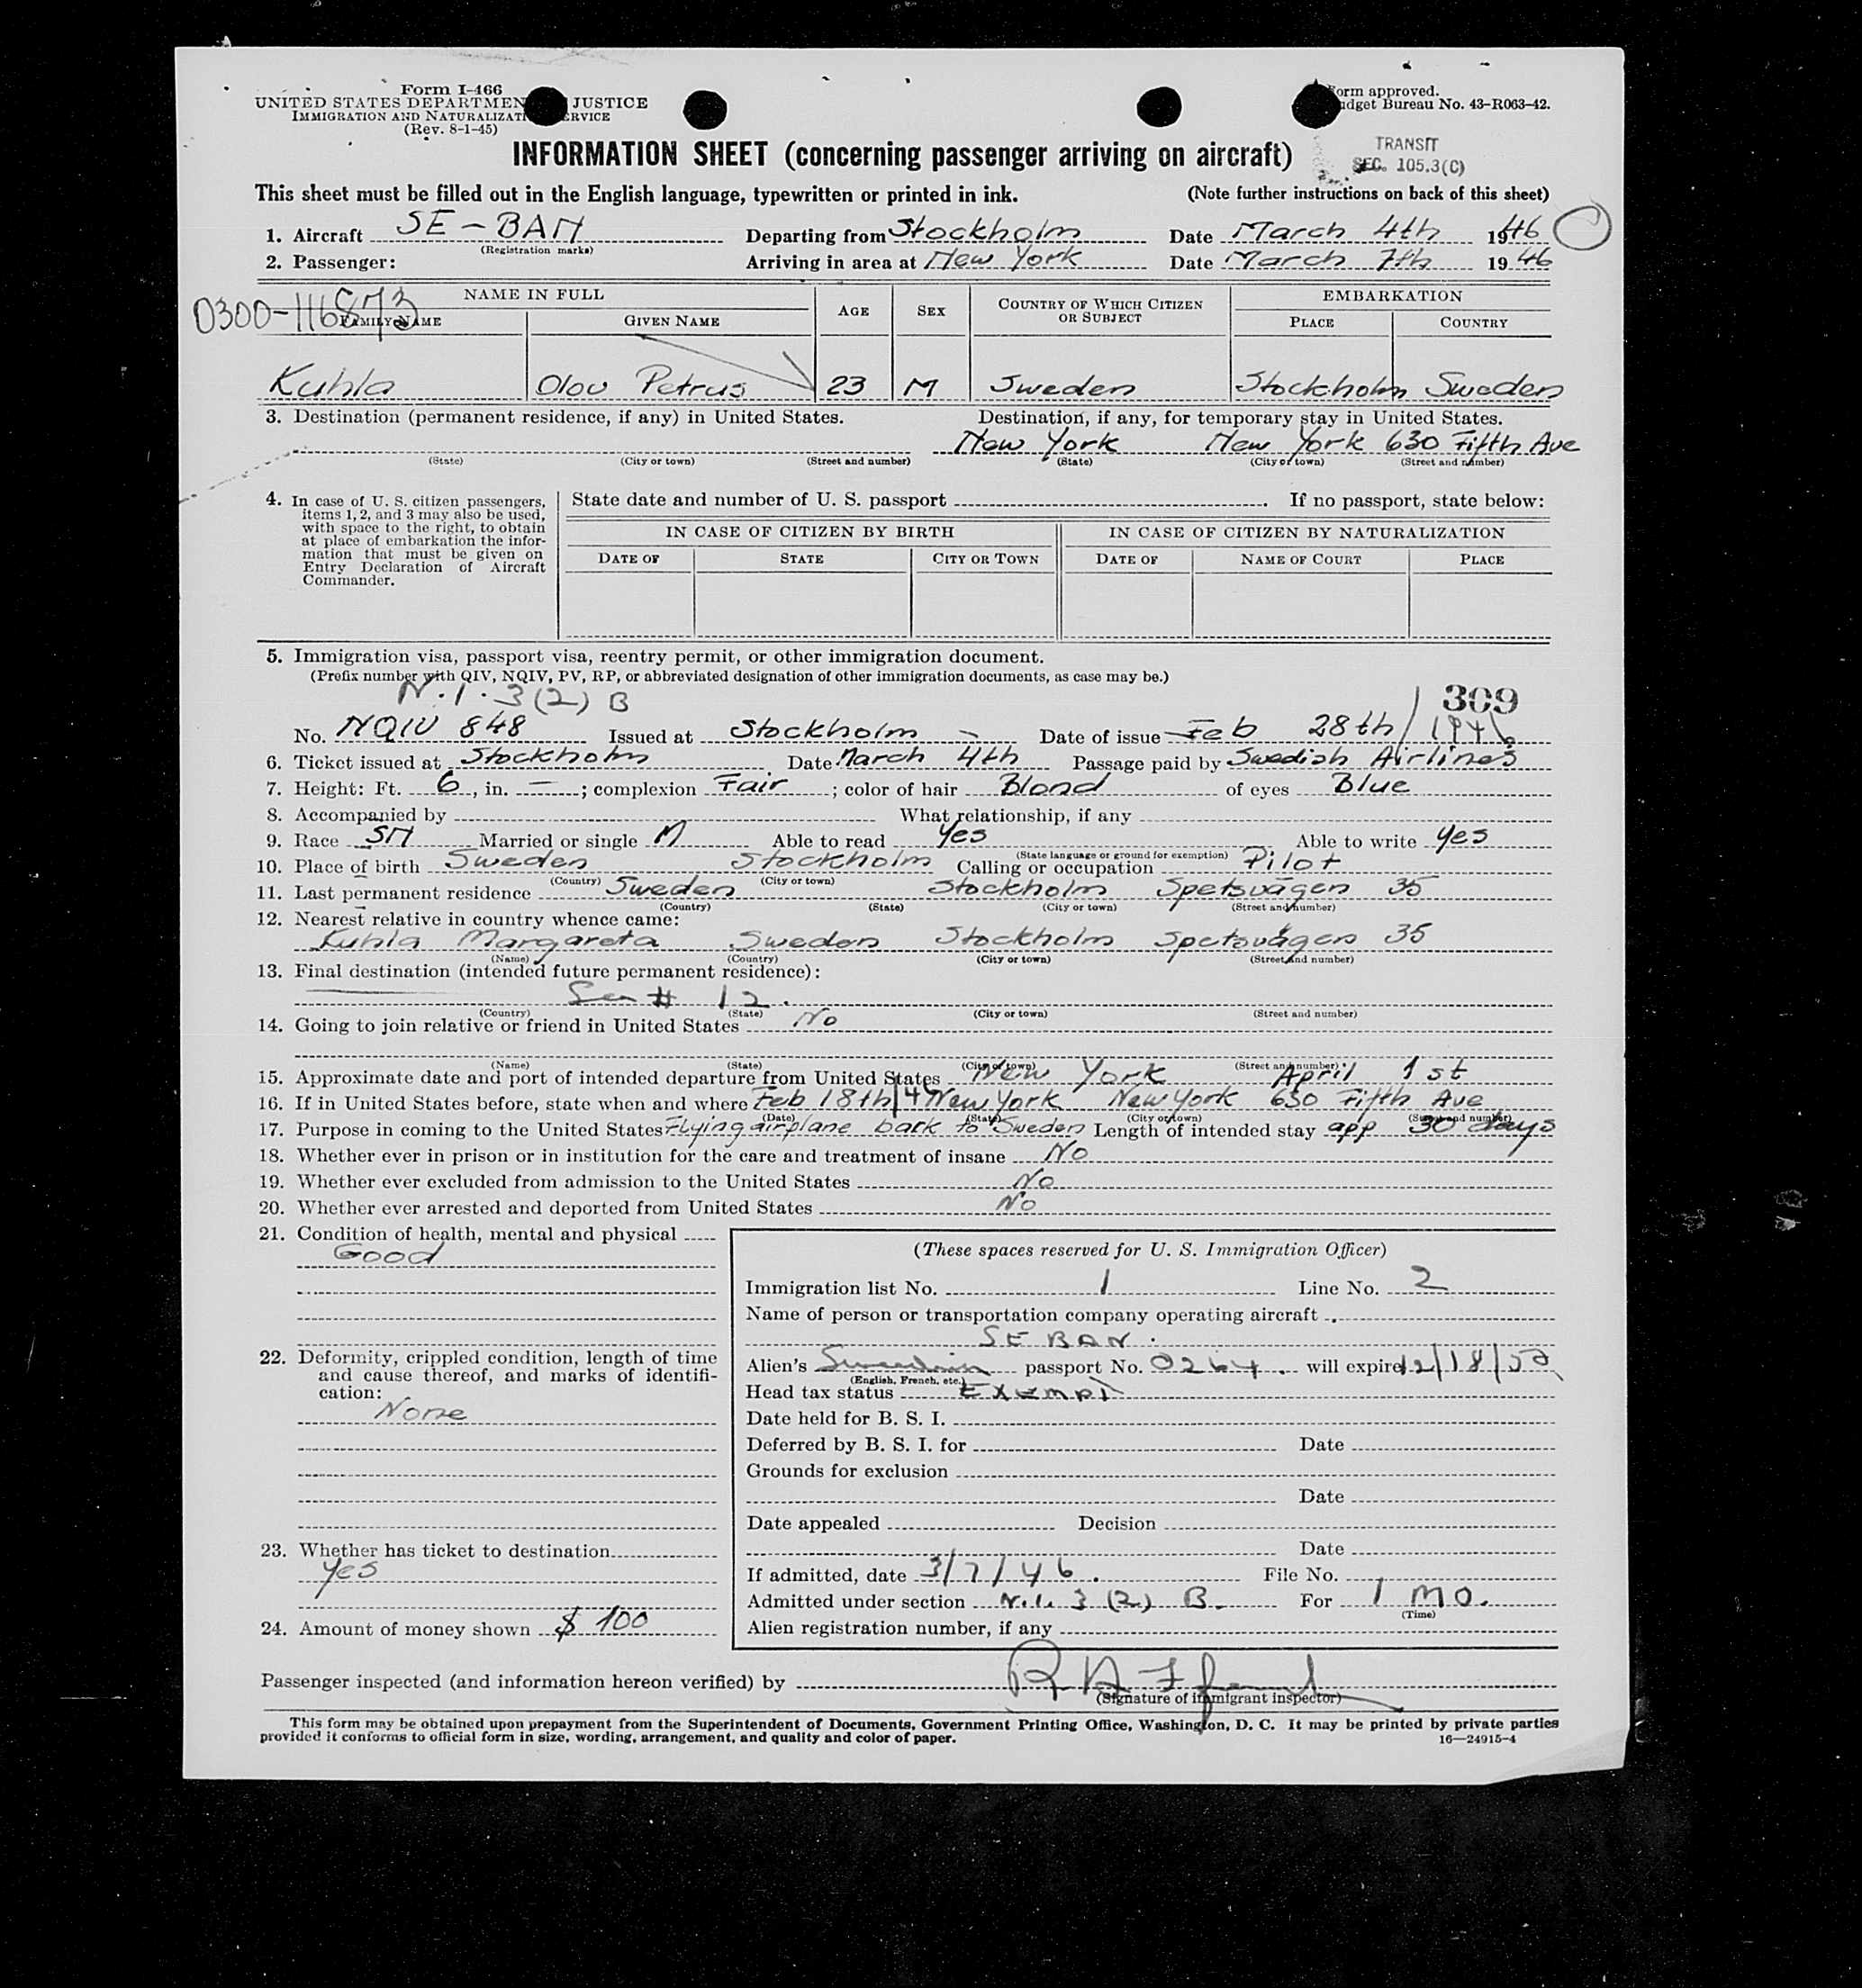 Form I-466
UNITED STATES DEPARTMEN JUSTICE
IMMIGRATION AND NATURALIZATI ERVICE
(Rev. 8-1-45)
orm approved.
dget Bureau No. 43-R063-42.
INFORMATION SHEET (concerning passenger arriving on aircraft)
TRANSIT
SEC. 105.3(C)
This sheet must be filled out in the English language, typewritten or printed in ink. (Note further instructions on back of this sheet)
1. Aircraft SE-BAN Departing from Stockholm Date March 4th 1946
(Registration marks)
2. Passenger: Arriving in area at New York Date March 7th 1946
0300-116873
NAME IN FULL AGE SEX COUNTRY OF WHICH CITIZEN OR SUBJECT EMBARKATION
FAMILY NAME GIVEN NAME PLACE COUNTRY
Kuhla Olov Petrus 23 M Sweden Stockholm Sweden
3. Destination (permanent residence, if any) in United States. Destination, if any, for temporary stay in United States.
New York New York 630 Fifth Ave
(State) (City or town) (Street and number) (State) (City or town) (Street and number)
4. In case of U. S. citizen passengers,
items 1, 2, and 3 may also be used,
with space to the right, to obtain
at place of embarkation the infor-
mation that must be given on
Entry Declaration of Aircraft
Commander.
State date and number of U. S. passport . If no passport, state below:
IN CASE OF CITIZEN BY BIRTH IN CASE OF CITIZEN BY NATURALIZATION
DATE OF STATE CITY OR TOWN DATE OF NAME OF COURT PLACE
5. Immigration visa, passport visa, reentry permit, or other immigration document.
(Prefix number with QIV, NQIV, PV, RP, or abbreviated designation of other immigration documents, as case may be.)
N.I. 3(2) B
309
No. NQIV 848 Issued at Stockholm Date of issue Feb 28th/1946
6. Ticket issued at Stockholm Date March 4th Passage paid by Swedish Airlines
7. Height: Ft. 6, in. —; complexion Fair; color of hair Blond of eyes Blue
8. Accompanied by What relationship, if any
9. Race SM Married or single M Able to read Yes Able to write Yes
(State language or ground for exemption)
10. Place of birth Sweden Stockholm Calling or occupation Pilot
(Country) (City or town)
11. Last permanent residence Sweden Stockholm Spetsvägen 35
(Country) (State) (City or town) (Street and number)
12. Nearest relative in country whence came:
Kuhla Margareta Sweden Stockholm Spetsvägen 35
(Name) (Country) (City or town) (Street and number)
13. Final destination (intended future permanent residence):
See # 12.
(Country) (State) (City or town) (Street and number)
14. Going to join relative or friend in United States No
(Name) (State) (City or town) (Street and number)
15. Approximate date and port of intended departure from United States New York April 1st
16. If in United States before, state when and where Feb 18th/46 New York New York 630 Fifth Ave
(Date) (State) (City or town) (Street and number)
17. Purpose in coming to the United States Flying airplane back to Sweden Length of intended stay app 30 days
18. Whether ever in prison or in institution for the care and treatment of insane No
19. Whether ever excluded from admission to the United States No
20. Whether ever arrested and deported from United States No
21. Condition of health, mental and physical
Good
22. Deformity, crippled condition, length of time
and cause thereof, and marks of identifi-
cation:
None
23. Whether has ticket to destination
Yes
24. Amount of money shown $ 100
(These spaces reserved for U. S. Immigration Officer)
Immigration list No. 1 Line No. 2
Name of person or transportation company operating aircraft
SE BAN.
Alien's Swedish passport No. 0264. will expire 12/18/50
(English, French, etc.)
Head tax status Exempt
Date held for B. S. I.
Deferred by B. S. I. for Date
Grounds for exclusion
Date
Date appealed Decision
Date
If admitted, date 3/7/46. File No.
Admitted under section N.I. 3 (2) B. For 1 MO.
(Time)
Alien registration number, if any
Passenger inspected (and information hereon verified) by
(Signature of immigrant inspector)
This form may be obtained upon prepayment from the Superintendent of Documents, Government Printing Office, Washington, D. C. It may be printed by private parties
provided it conforms to official form in size, wording, arrangement, and quality and color of paper.
16—24915-4